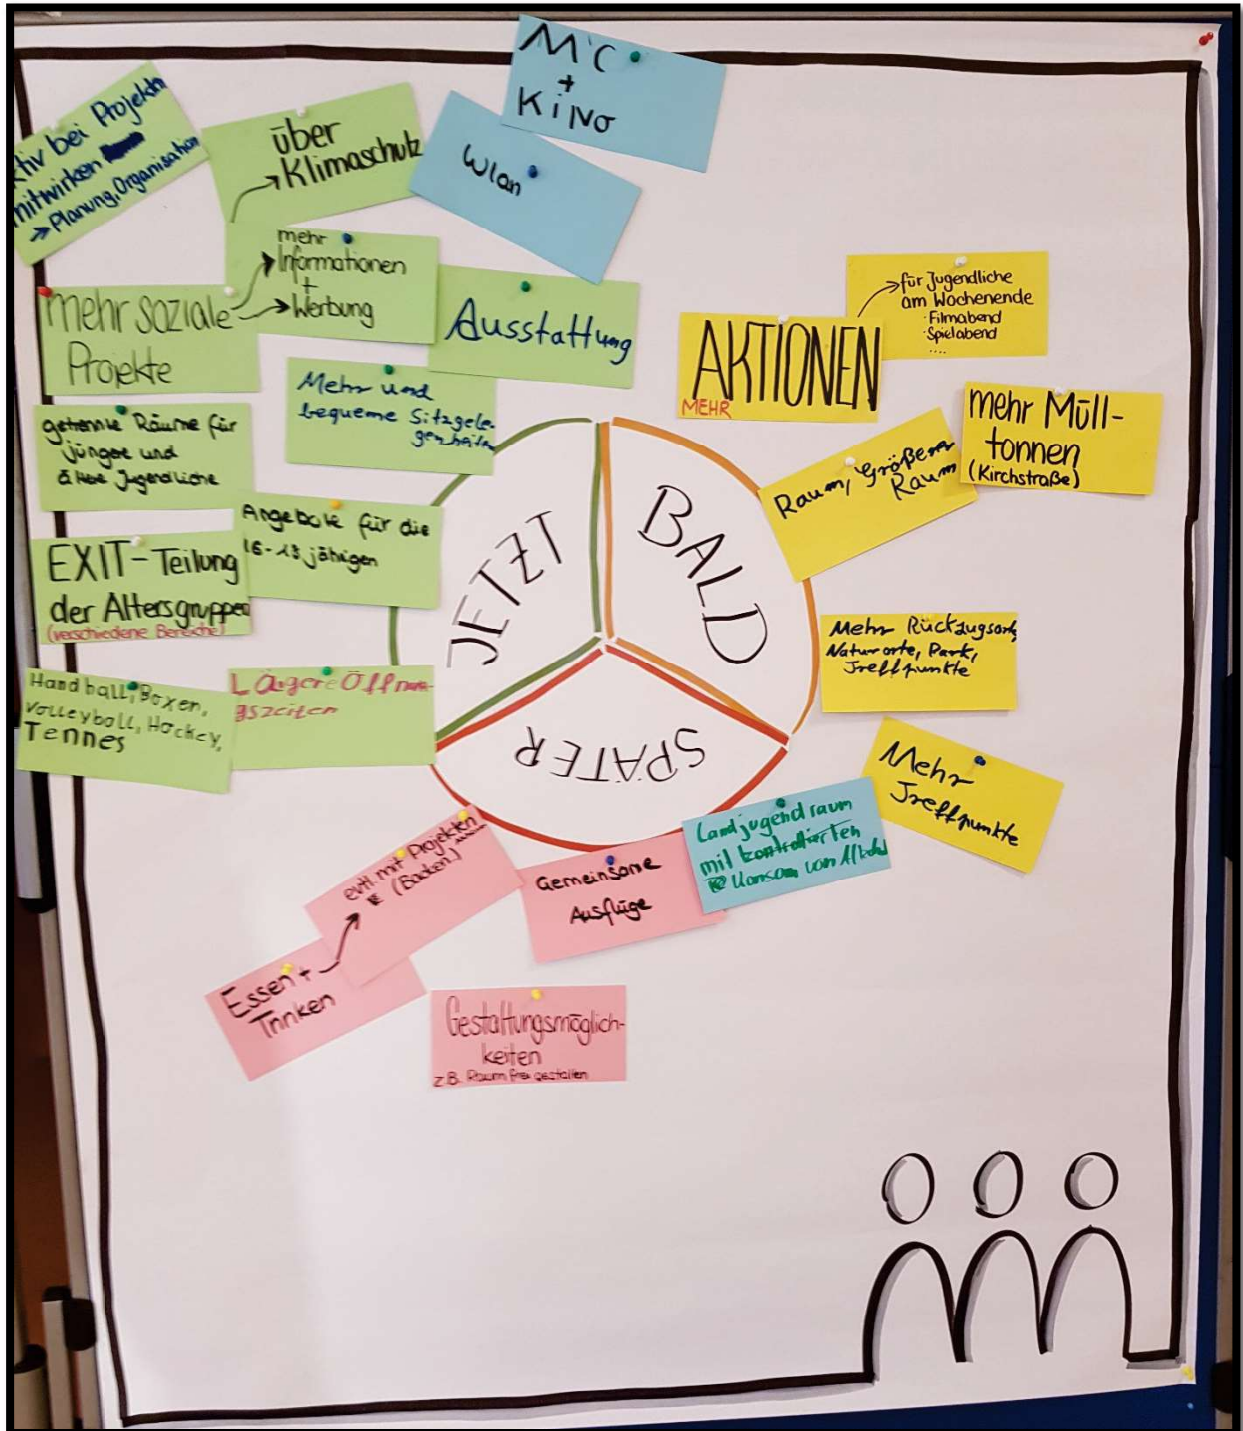 M'C
+
KiNO
Wlan
ktiv bei Projektn
mitwirken
→ Planung, Organisation
über
Klimaschutz
mehr
Informationen
+
Werbung
mehr soziale
Projekte
Ausstattung
Mehr und
bequeme Sitzgele-
genheiten
getrennte Räume für
jüngere und
ältere Jugendliche
Angebote für die
16-18 jährigen
EXIT-Teilung
der Altersgruppen
(verschiedene Bereiche)
Handball, Boxen,
Volleyball, Hockey,
Tennes
Lägere Öffnun-
gszeiten
JETZT
BALD
SPÄTER
AKTIONEN
MEHR
für Jugendliche
am Wochenende
·Filmabend
·Spielabend
....
mehr Müll-
tonnen
(Kirchstraße)
Raum, Größerer
Raum
Mehr Rückzugsorte,
Naturorte, Park,
Treffpunkte
Mehr
Treffpunkte
Landjugendraum
mit kontrollierten
Konsum von Alkohol
Gemeinsame
Ausflüge
evtl. mit Projekten
(Backen)
Essen +
Trinken
Gestaltungsmöglich-
keiten
z.B. Raum frei gestalten